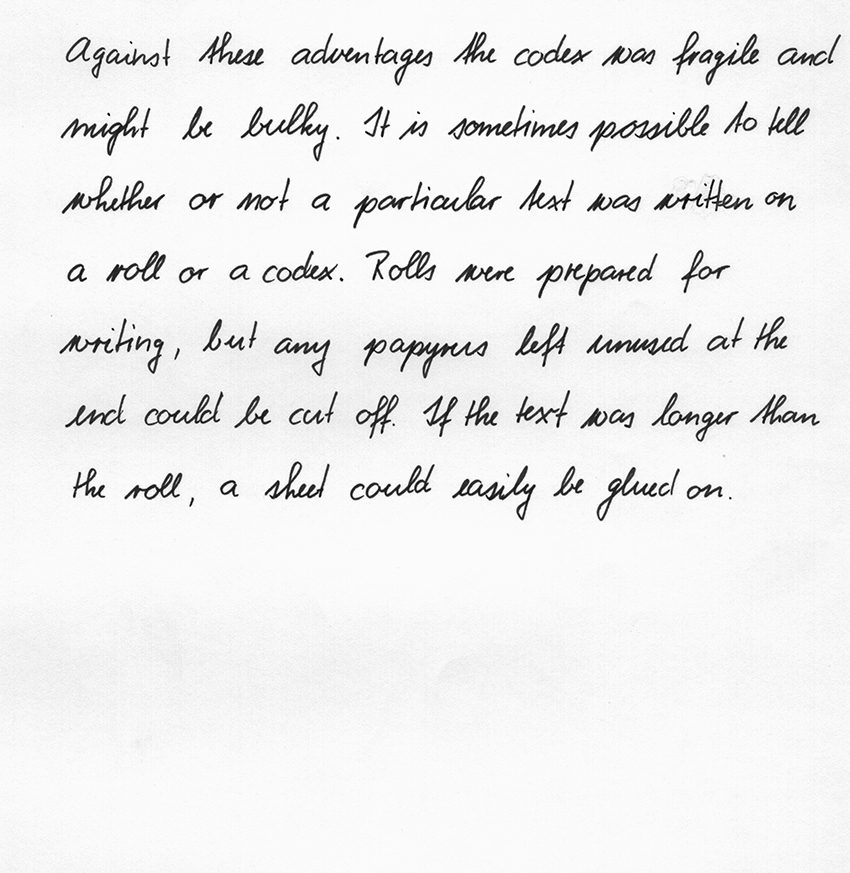 Against these adventages the codex was fragile and
might be bulky. It is sometimes possible to tell
whether or not a particular text was written on
a roll or a codex. Rolls were prepared for
writing, but any papyrus left unused at the
end could be cut off. If the text was longer than
the roll, a sheet could easily be glued on.